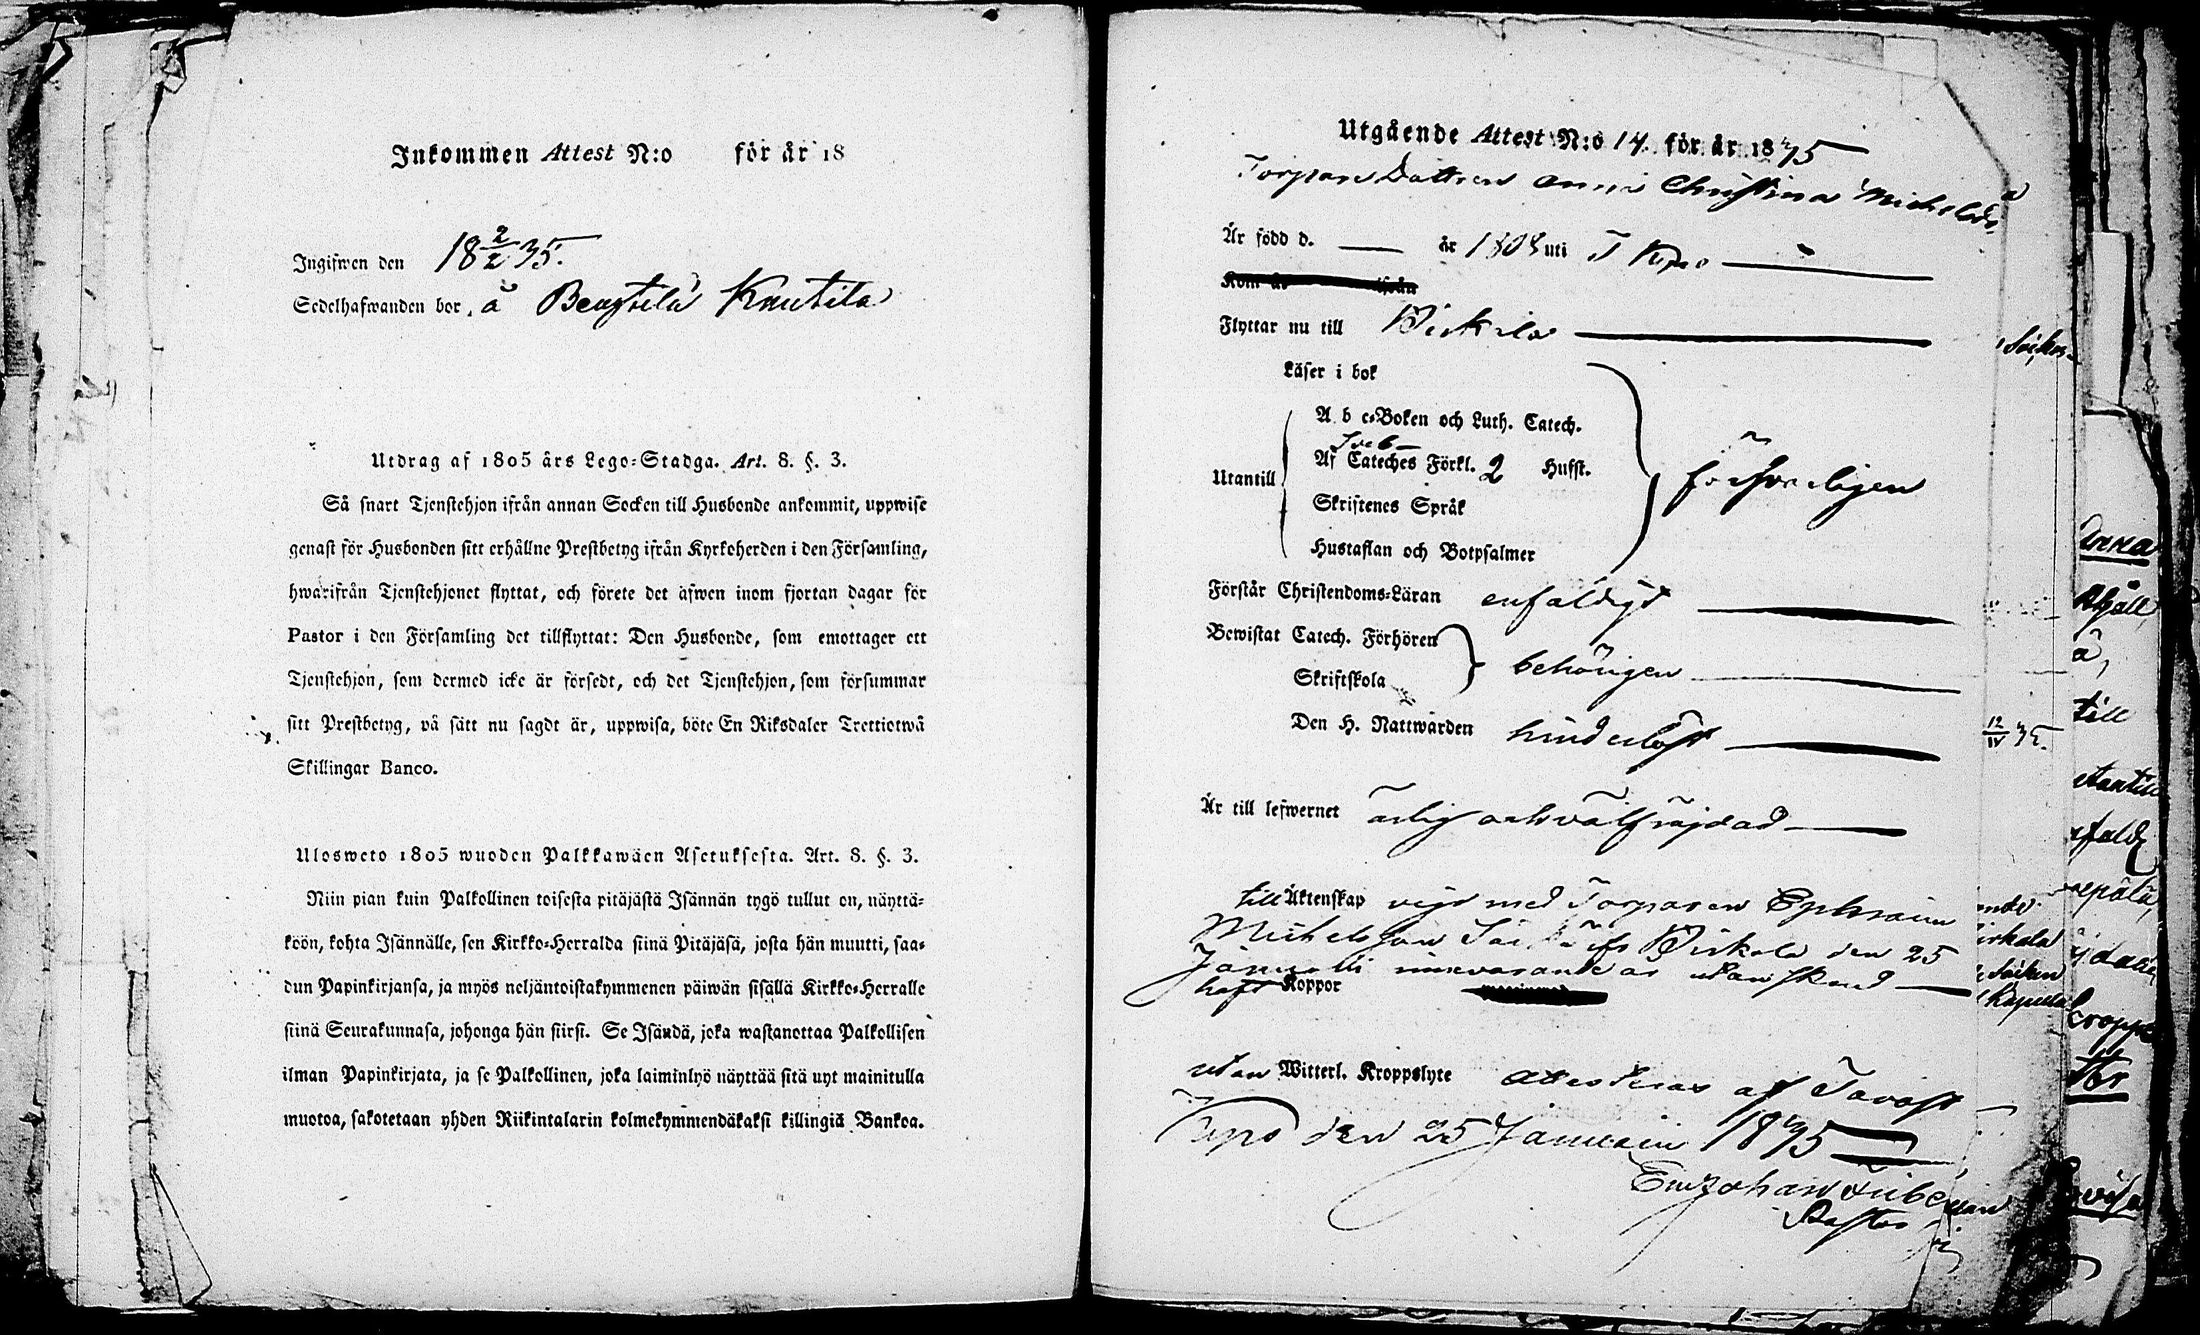 Inkommen Attest N:o för år 18
Ingifwen den 18 2/2 35.
Sedelhafwanden bor, å Bengtilä Knutila
Utdrag af 1805 års Lego-Stadga. Art. 8. §. 3.
Så snart Tjenstehjon ifrån annan Socken till Husbonde ankommit, uppwise
genast för Husbonden sitt erhållne Prestbetyg ifrån Kyrkoherden i den Församling,
hwarifrån Tjenstehjonet flyttat, och förete det äfwen inom fjorton dagar för
Pastor i den Församling det tillflyttat: Den Husbonde, som emottager ett
Tjenstehjon, som dermed icke är försedt, och det Tjenstehjon, som försummar
sitt Prestbetyg, på sätt nu sagdt är, uppwisa, böte En Riksdaler Trettiotwå
Skillingar Banco.
Ulosweto 1805 wuoden Palkkawäen Asetuksesta. Art. 8. §. 3.
Niin pian kuin Palkollinen toisesta pitäjästä Isännän tygö tullut on, näyttä-
köön, kohta Isännälle, sen Kirkko-Herralda siinä Pitäjäsä, josta hän muutti, saa-
dun Papinkirjansa, ja myös neljäntoistakymmenen päiwän sisällä Kirkko-Herralle
siinä Seurakunnasa, johonga hän siirsi. Se Isändä, joka wastanottaa Palkollisen
ilman Papinkirjata, ja se Palkollinen, joka laiminlyö näyttää sitä nyt mainitulla
muotoa, sakotetaan yhden Riikintalarin kolmekymmendäkaksi killingiä Bankoa.
Utgående Attest N:o 14. för år 1835
Torpare Dottren Anna Christina Michelsdr
Är född d. — år 1808 uti T Kyro
Kom år ifrån
Flyttar nu till Birkala
Läser i bok
A b c-Boken och Luth. Catech.
Sveb
Utantill Af Cateches Förkl. 2 Hufst.
Skriftenes Språk
Hustaflan och Botpsalmer
försvarligen
Förstår Christendoms-Läran enfaldigt
Bewistat Catech. Förhören
Skriftskola
behörigen
Den H. Nattwarden hinderlöst
Är till lefwernet ärlig och välfräjdad
till Äktenskap vigd med Torparen Ephraim
Michelsson ifr Birkala den 25
Januarii innevarande år utan skand
haft Koppor
utan Witterl. Kroppslyte attesteras af Tavast
Kyro den 25 Januarii 1835
Em Johan
Pastor
Anna
å,
till
12/IV 35.
Socken